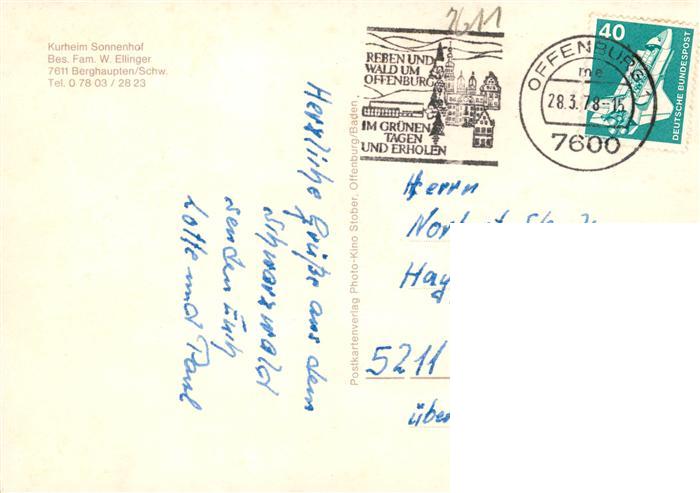 Kurheim Sonnenhof
Bes. Fam. W. Ellinger
7611 Berghaupten/Schw.
Tel. 0 78 03 / 28 23
7611
REBEN UND
WALD UM
OFFENBURG
IM GRÜNEN
TAGEN
UND ERHOLEN
OFFENBURG 1
me
28.3.78-15
7600
40
DEUTSCHE BUNDESPOST
Herzliche Grüße aus dem
Schwarzwald
senden Euch
Lotte und Paul
Postkartenverlag Photo-Kino Stober, Offenburg/Baden
Herrn
Hay
5211
über